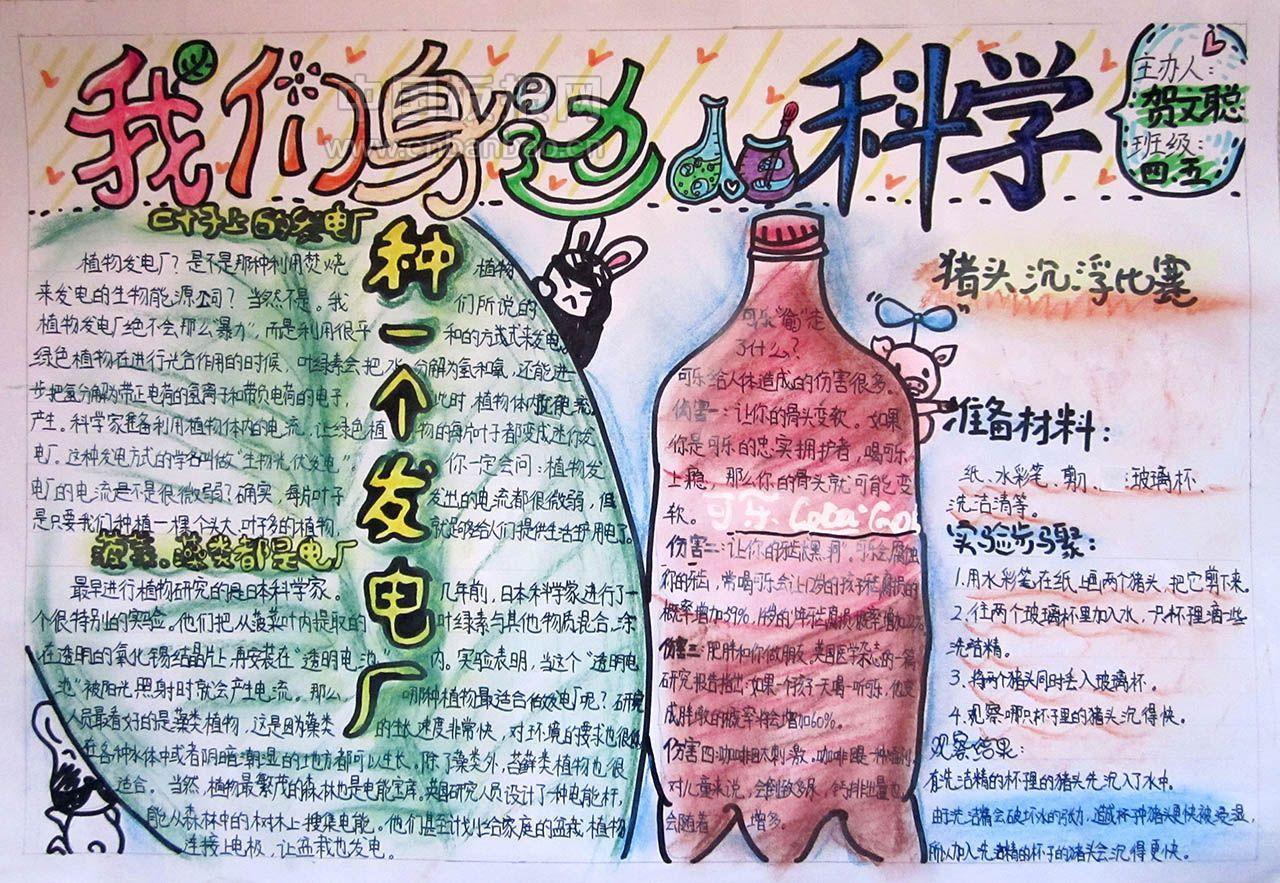 我们身边科学
中国板报网
www.cnbanbao.cn
主办人：
贺文聪
班级：
四五
叶子上的发电厂
种一个发电厂
植物发电厂？是不是那种利用焚烧植物
来发电的生物能源公司？当然不是。我们所说的
植物发电厂绝不会那么“暴力”，而是利用很平和的方式来发电。
绿色植物在进行光合作用的时候，叶绿素会把水分解为氢和氧，还能进一
步把氢分解为带正电荷的氢离子和带负电荷的电子，此时植物体内
产生。科学家准备利用植物体内的电流，让绿色植物的每片叶子都变成迷你发
电厂。这种发电方式的学名叫做“生物光伏发电”。你一定会问：植物发
电厂的电流是不是很微弱？确实，每片叶子发出的电流都很微弱，但
是只要我们种植一棵个头大、叶子多的植物，就足够给人们提供生活所用电了。
菠菜、藻类都是电厂
最早进行植物研究的是日本科学家。几年前，日本科学家进行了一
个很特别的实验。他们把从菠菜叶内提取的叶绿素与其他物质混合，涂
在透明的氧化锡结晶片上，再安装在“透明电池”内。实验表明，当这个“透明电
池”被阳光照射时就会产生电流。那么哪种植物最适合做发电厂呢？研究
人员最看好的是藻类植物，这是因为藻类的生长速度非常快，对环境的要求也很低
在各种水体中或者阴暗潮湿的土地方都可以生长。除了藻类外，苔藓类植物也很
适合。当然，植物最繁茂的森林也是电能宝库。英国研究人员设计了一种电能杆，
能从森林中的树木上搜集电能。他们甚至计划给家庭的盆栽植物
连接上电极，让盆栽也发电。
可乐“偷”走
了什么？
可乐给人体造成的伤害很多。
伤害一：让你的骨头变软。如果
你是可乐的忠实拥护者，喝可乐
上瘾，那么你的骨头就可能变
软。
可乐
伤害二：让你的牙齿长“黑洞”。可乐会腐蚀
你的牙齿，常喝可乐会让12岁的孩子牙齿腐损的
概率增加59%，14岁的
伤害三：肥胖和你做朋友。英国医学杂志的一篇
研究报告指出：如果一个孩子一天喝一听可乐，他变
成胖墩的概率将会增加60%。
伤害四：咖啡因太刺激。咖啡因是一种
对儿童来说，会导致多尿，钙排出量也
会随着增多。
猪头沉浮比赛
准备材料：
纸、水彩笔、剪刀、玻璃杯、
洗洁清等。
实验步骤：
1.用水彩笔在纸上画两个猪头，把它剪下来。
2.往两个玻璃杯里加入水，一只杯里滴一些
洗洁精。
3.将两个猪头同时丢入玻璃杯。
4.观察哪只杯子里的猪头沉得快。
观察结果：
有洗洁精的杯理的猪头先沉入了水中。
由于洗洁精会破坏水的张力，造成杯中猪头更快被浸湿，
所以加入洗洁精的杯子的猪头会沉得更快。